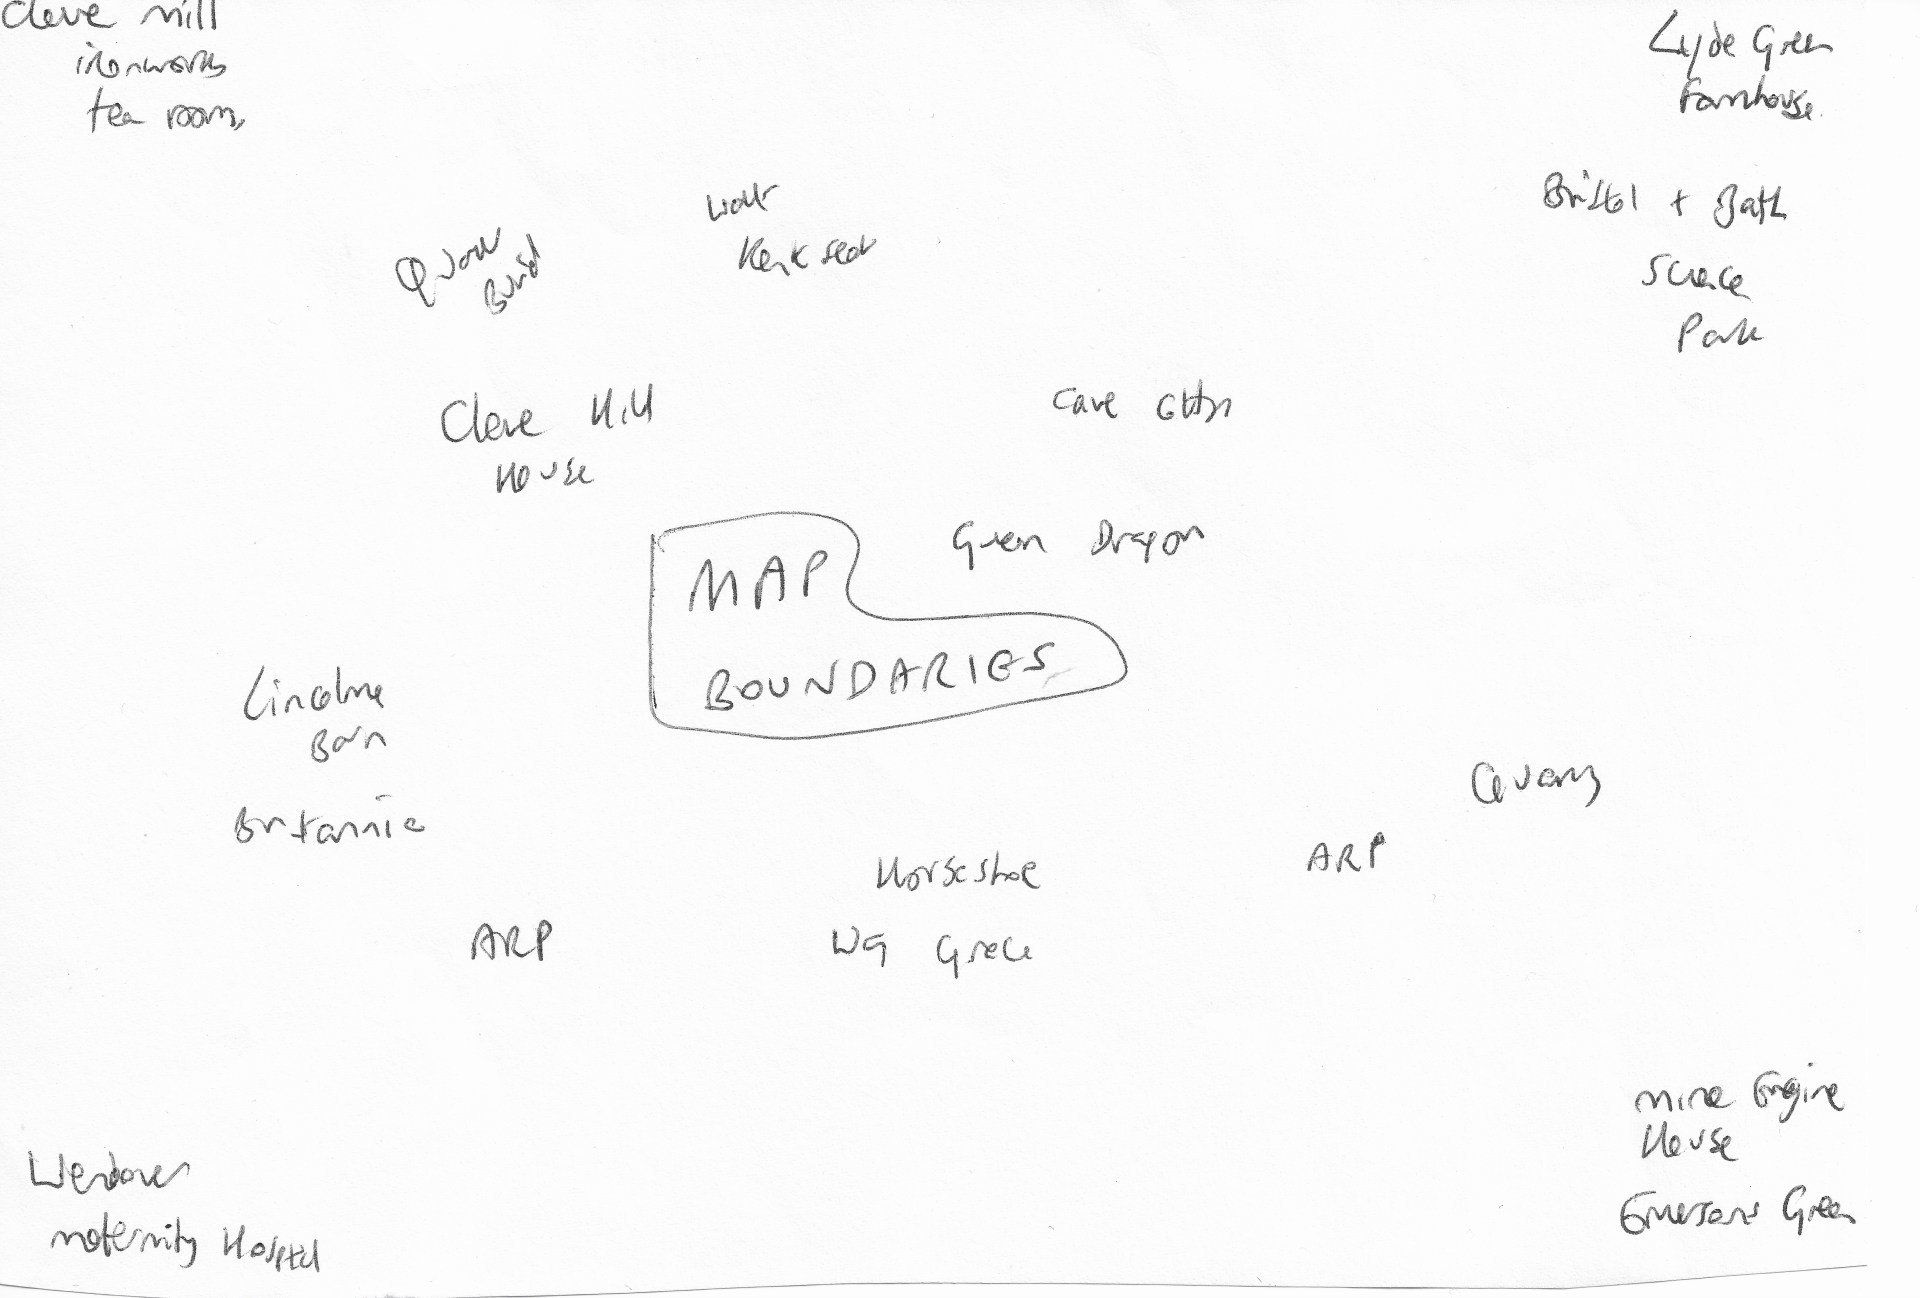 Cleve mill
ironworks
tea rooms
Lyde Green
Farmhouse
Bristol + Bath
Science
Park
Kenk seat
Cleve Hill
House
Cave
Green Dragon
MAP
BOUNDARIES
Lincolme
Barn
Britannia
Quarry
ARP
Horseshoe
WG Grace
ARP
Mine Engine
House
Emersons Green
Wendover
maternity Hospital